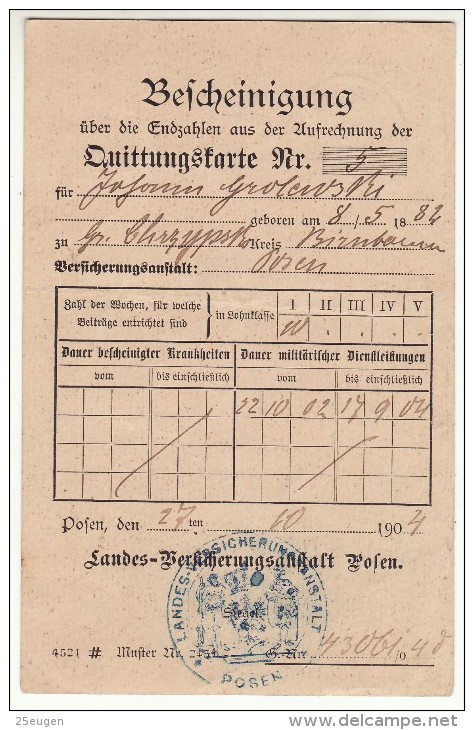 Bescheinigung
über die Endzahlen aus der Aufrechnung der
Quittungskarte Nr. 5
für Johann Grolewski
geboren am 8/5 1882
zu Gr. Chrzypsko Kreis Birnbaum
Versicherungsanstalt: Posen
Zahl der Wochen, für welche Beiträge entrichtet sind } in Lohnklasse I II III IV V
Dauer bescheinigter Krankheiten Dauer militärischer Dienstleistungen
vom bis einschließlich vom bis einschließlich
22 10 02 17 9 04
Posen, den 27ten 10 1904
Landes-Versicherungsanstalt Posen.
LANDES-VERSICHERUNGSANSTALT
Siegel.
POSEN
4521 # Muster Nr. G.-Nr.
25eugen
delcampe.net